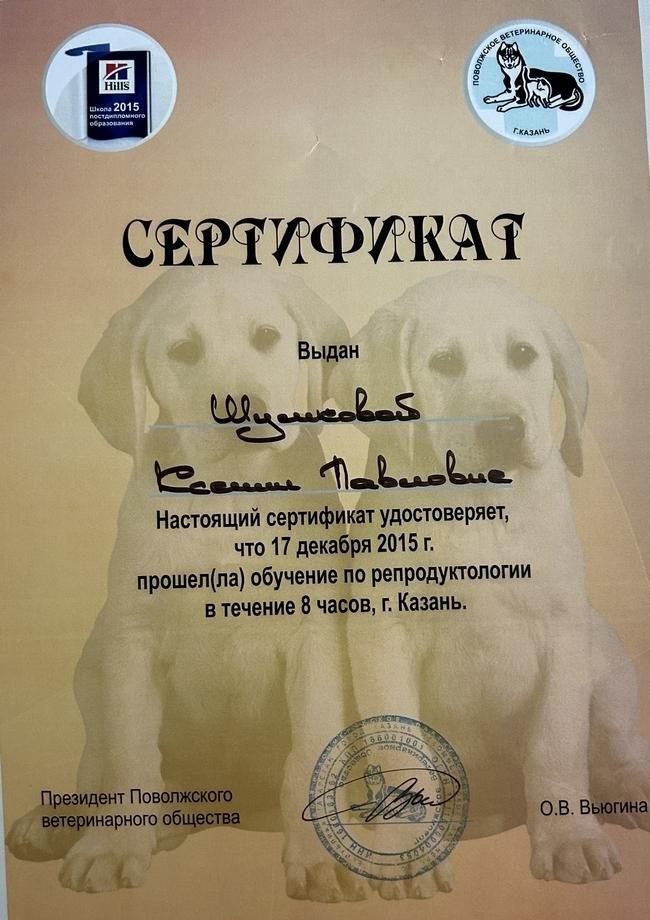 Hill's
Школа 2015
постдипломного
образования
ПОВОЛЖСКОЕ ВЕТЕРИНАРНОЕ ОБЩЕСТВО
Г.КАЗАНЬ
СЕРТИФИКАТ
Выдан
Шумковой
Ксении Павловне
Настоящий сертификат удостоверяет,
что 17 декабря 2015 г.
прошел(ла) обучение по репродуктологии
в течение 8 часов, г. Казань.
Президент Поволжского
ветеринарного общества
О.В. Вьюгина